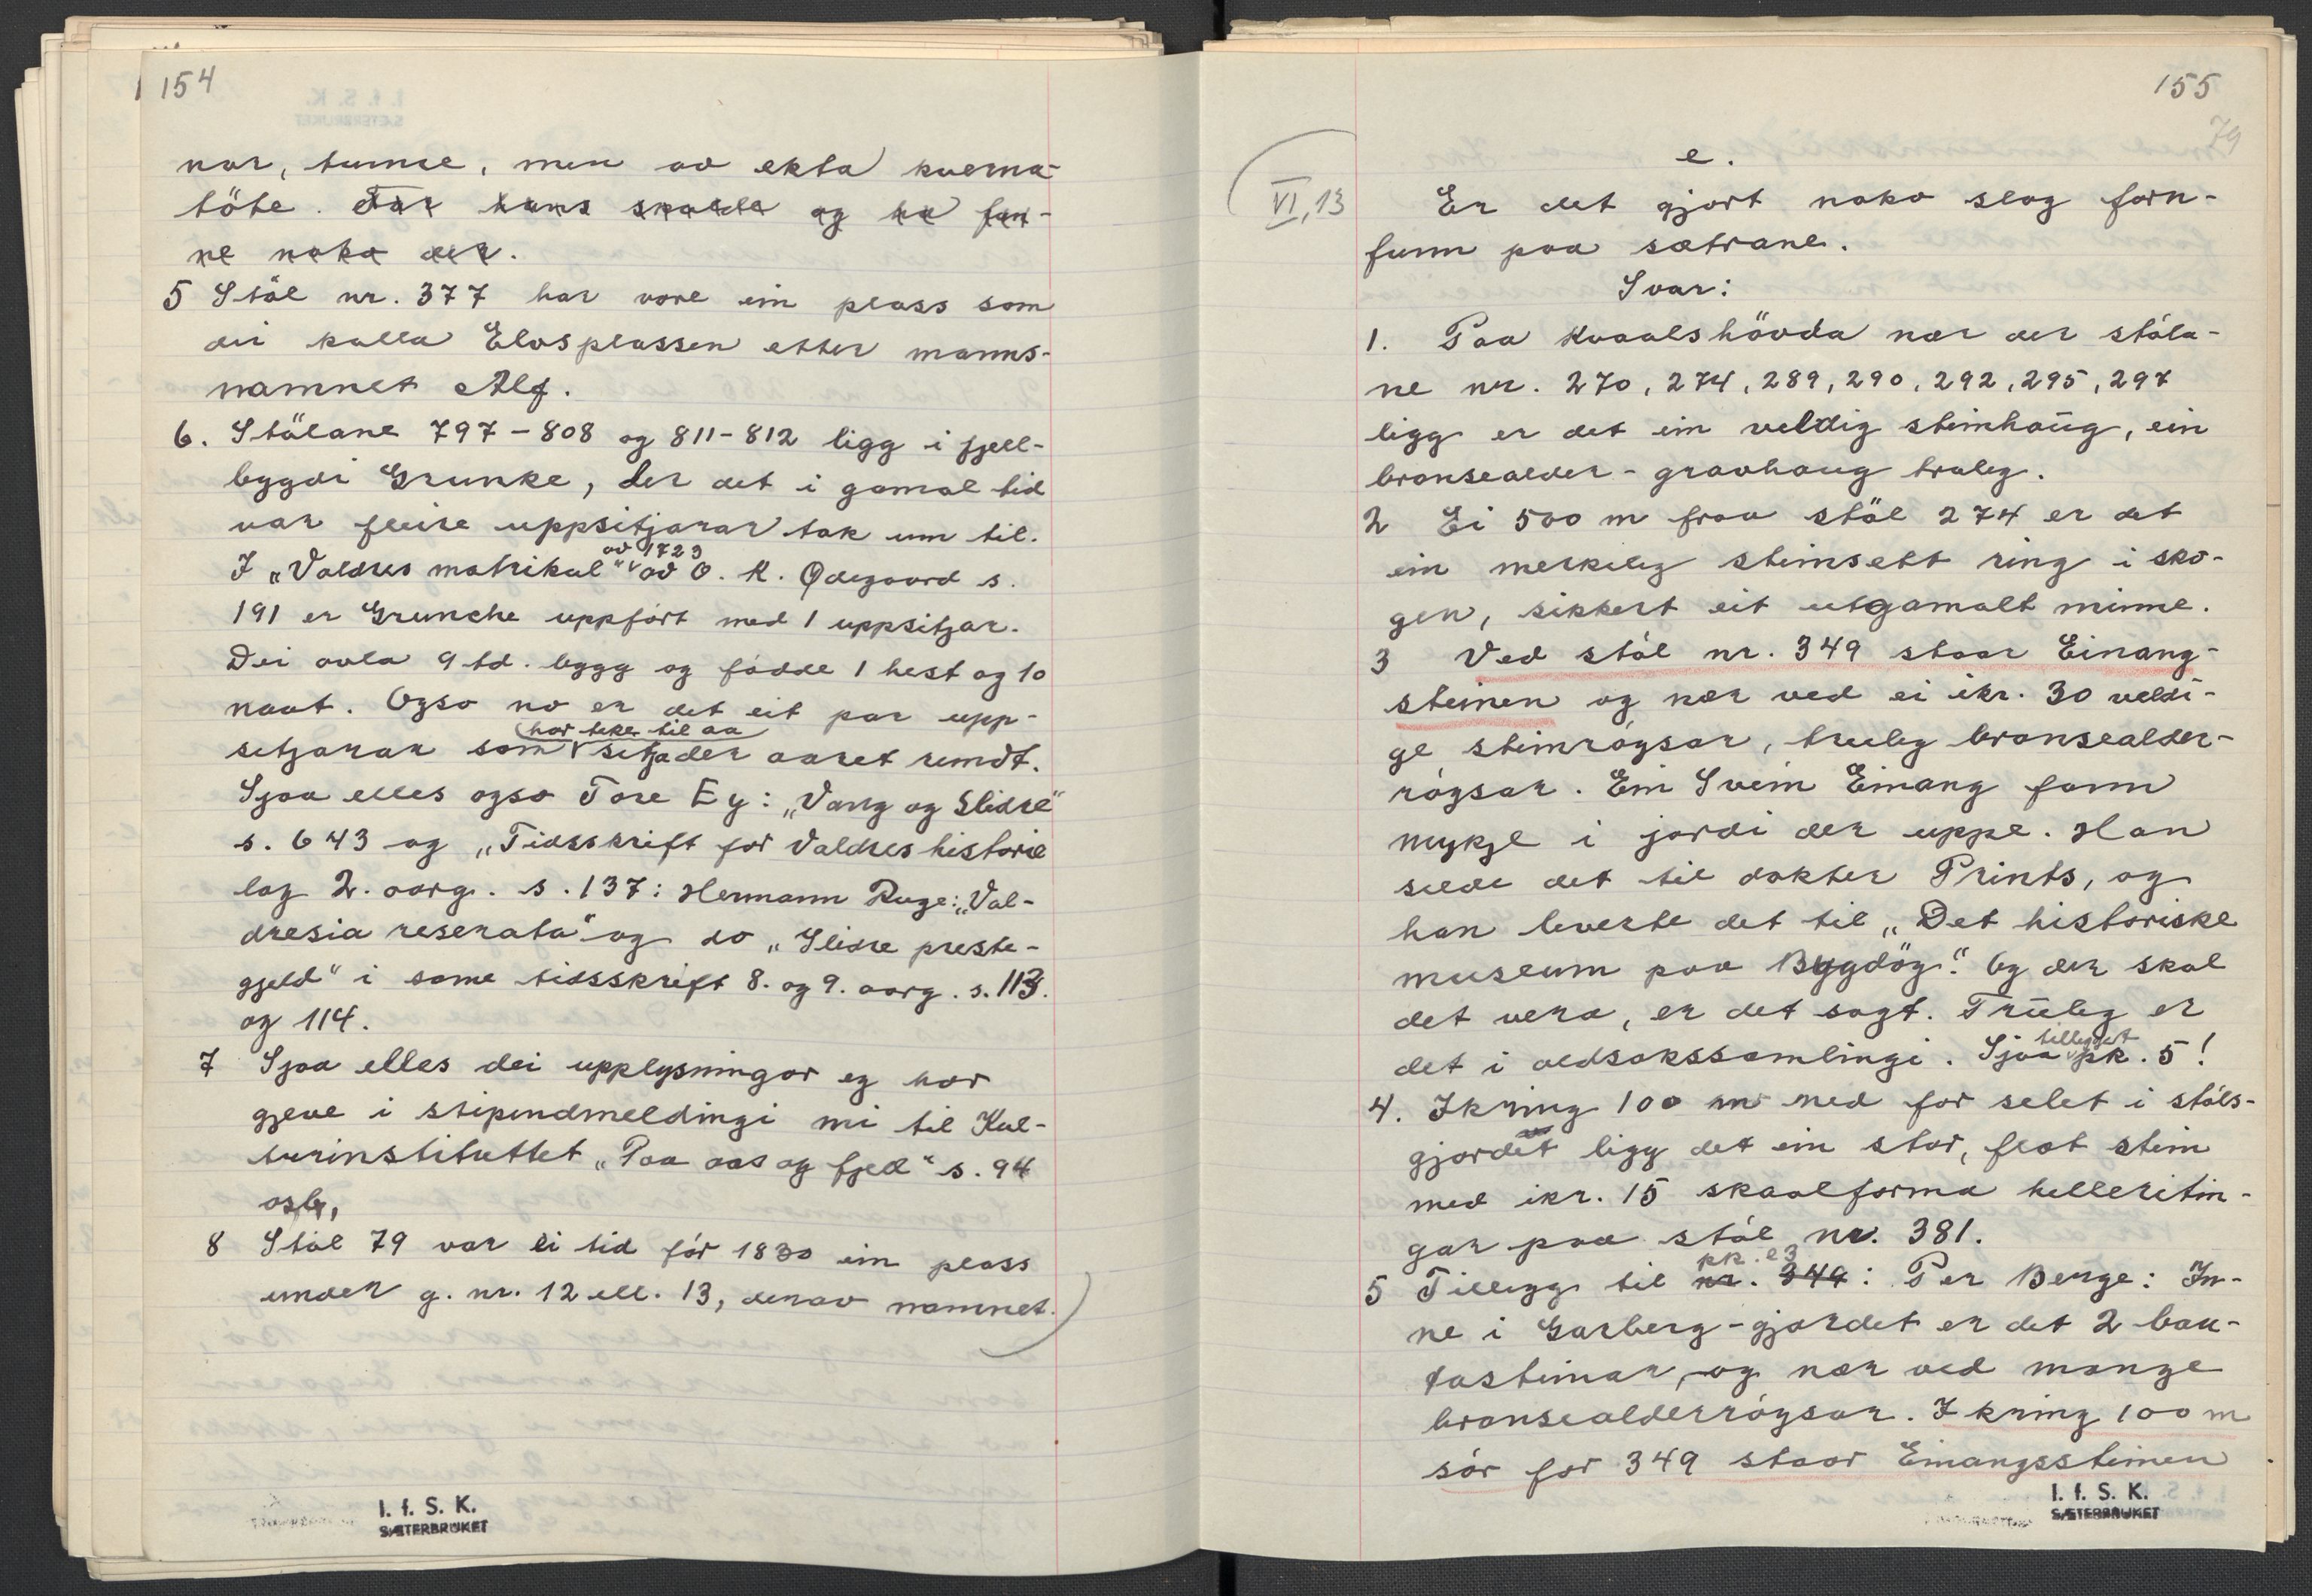 154
nar, tunne, men av ekta kverna-
töte. Far hans skalde og ha fun-
ne noko der.
5 Stöl nr. 377 har vore ein plass som
dei kalla Elvsplassen etter manns-
namnet Alf.
6. Stölane 797-808 og 811-812 ligg i fjell-
bygdi Grunke, der det i gamal tid
var fleire uppsitjarar tok um til.
av 1723
I „Valdres matrikul" av O. K. Ødegaard s.
191 er Grunche uppfört med 1 uppsitjar.
Dei avla 9 td. bygg og födde 1 hest og 10
naut. Ogso no er det eit par upp-
har teke til aa
sitjarar som sitja der aaret rundt.
Sjaa elles ogso Tore Ey: „Vang og Slidre"
s. 643 og „Tidsskrift for Valdres historie
lag 2. aarg. s. 137: Hermann Ruge: „Val-
dresia reserata" og do „Slidre preste-
gjeld" i same tidsskrift 8. og 9. aarg. s. 113.
og 114.
7 Sjaa elles dei upplysningar eg har
gjeve i stipendmeldingi mi til Kul-
turinstituttet „Paa aas og fjell" s. 94
osb,
8 Stöl 79 var ei tid för 1830 ein plass
under g. nr. 12 ell. 13, derav namnet.
I. f. S. K.
SÆTERBRUKET
155
79
VI, 13
e.
Er det gjort noko slag forn-
funn paa sætrane.
Svar:
1. Paa Kvaalshövda nær der stöla-
ne nr. 270, 274, 289, 290, 292, 295, 297
ligg er det ein veldig steinhaug, ein
bronsealder-gravhaug truleg.
2 Ei 500 m fraa stöl 274 er det
ein merkeleg steinsett ring i sko-
gen, sikkert eit utgamalt minne.
3 Ved stöl nr. 349 staar Einang-
steinen og nær ved ei ikr. 30 veldi-
ge steinrögsar, truleg bronsealder-
rögsar. Ein Svein Einang fann
mykje i jordi der uppe. Han
selde det til dokter Prints, og
han leverte det til „Det historiske
museum paa Bygdög." Og der skal
det vera, er det sagt. Truleg er
det i oldsakssamlingi. Sjaa tillegget pk. 5!
4. Ikring 100 m ned for selet i stöls-
gjordet ligg det ein stor, flat stein
med ikr. 15 skaalforma helleritin-
gar paa stöl nr. 381.
pk. e3
5 Tillegg til nr. 349: Per Berge: In-
ne i Garberg-gjordet er det 2 bau-
tasteinar, og nær ved mange
bronsealderrögsar. Ikring 100 m
sör for 349 staar Einangssteinen
I. f. S. K.
SÆTERBRUKET